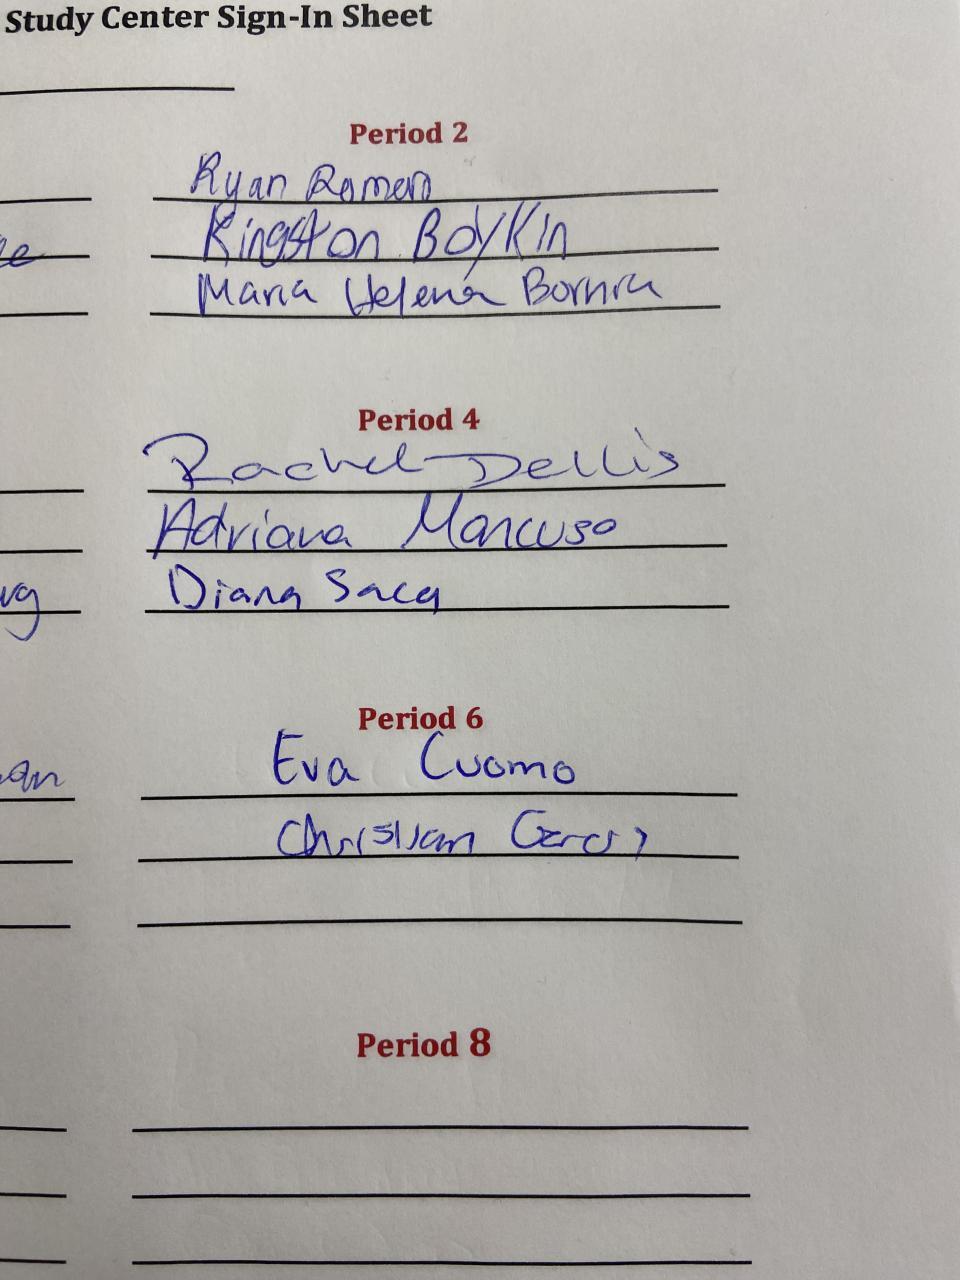 Study Center Sign-In Sheet
Period 2
Ryan Roman
Kingston Boykin
Maria Helena
Period 4
Rachel Dellis
Adriana Mancuso
Diana Saca
Period 6
Eva Cuomo
Christian
Period 8